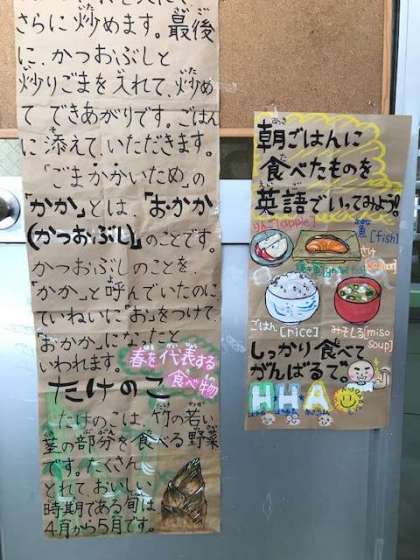 さらに炒めます。最後
に、かつおぶしと
炒りごまを入れて、炒め
て できあがりです。ごはん
に添えていただきます。
「ごまかかいため」の
「かか」とは、「おかか
(かつおぶし)」のことです。
かつおぶしのことを、
「かか」と呼んでいたのに
ていねいに「お」をつけて
「おかか」になったと
いわれます。
春を代表する
食べ物
たけのこ
たけのこは、竹の若い
茎の部分を食べる野菜
です。たくさん
とれて、おいしい
時期である旬は
4月から5月です。
朝ごはんに
食べたものを
英語でいってみよう!
りんご[apple]
魚[fish]
さけ
ごはん[rice]
みそしる[miso
soup]
しっかり食べて
がんばるで。
HHA